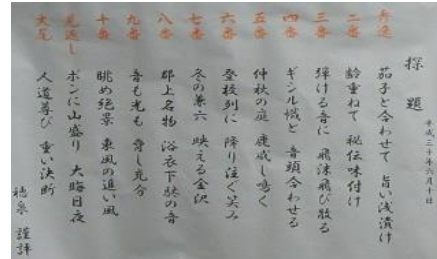 探題
平成三十年六月十日
秀逸 茄子と合わせて 旨い浅漬け
二番 齢重ねて 秘伝味付け
三番 弾ける音に 飛沫飛び散る
四番 ギシル と 音頭合わせる
五番 仲秋の庭 鹿威し鳴く
六番 登校列に 降り注ぐ笑み
七番 冬の兼六 映える金沢
八番 郡上名物 浴衣下駄の音
九番 音も光も 脅し充分
十番 眺め絶景 東風の追い風
見返し ボンに山盛り 大晦日夜
大尾 人道尊び 重い決断
穂泉 謹評